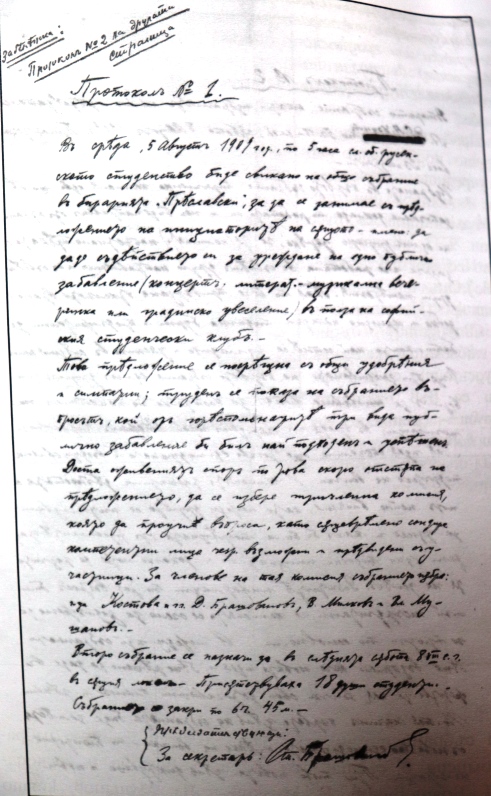 Забѣлѣжка:
Протоколъ № 2 на другата
страница
Протоколъ № 1.
Въ срѣда, 5 Августъ 1909 год., по 5 часа сл. об. русен-
ското студенство биде свикано на общо събрание
въ бирарията „Прѣславски“, за да се занимае съ прѣд-
ложението на инициаторитѣ на същото – именно, да
даде съдѣйствието си за уреждане на едно публично
забавление (концертъ, литерат.-музикална вече-
ринка или градинско увеселение) въ полза на софий-
ския студенчески клубъ.–
Това прѣдложение се посрѣщна съ общи удобрѣния
и симпатии; труденъ се показа на събранието въ-
просътъ, кой отъ горѣспоменатитѣ три вида пуб-
лично забавление би билъ най подходенъ и успѣшенъ
Доста оживениятъ споръ по това скоро отстѫпи на
прѣдложението, да се избере тричленна комисия,
която да проучи въпроса, като сѫщеврѣменно сондира
лица възможни и прѣдвидени съу-
частници. За членове на тая комисия събранието избра:
Костова и гг. Д. Брашовановъ, В. Милковъ и Му-
шановъ.–
Второ събрание се назначи да е въ слѣднята сѫбота 8 VIII с. г.
въ сѫщия локалъ. Присѫтствуваха 18 души студенти.–
Събранието се закри по 6 ч. 45 м.–
Прѣдседателствующъ:
За секретарь: